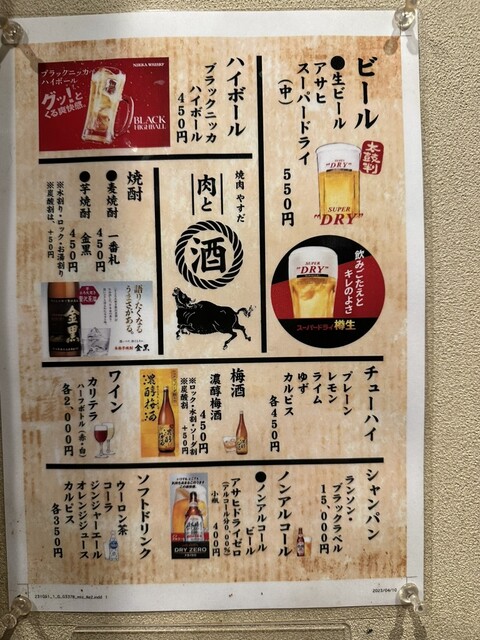 ビール
●生ビール
アサヒ
スーパードライ
(中)
550円
本数割
SUPER
"DRY"
SUPER
"DRY"
飲みごたえと
キレのよさ
SUPER
"DRY"
スーパードライ樽生
ハイボール
ブラックニッカ
ハイボール
450円
NIKKA WHISKY
ブラックニッカ
ハイボール
グッ!と
くる爽快感。
BLACK
HIGHBALL
焼肉 やすだ
肉と
酒
焼酎
●麦焼酎 一番札
450円
●芋焼酎 金黒
450円
※水割り・ロック・お湯割り
※炭酸割は、+50円
金黒
語りたくなる
うまさがある。
金黒
チューハイ
プレーン
レモン
ライム
ゆず
カルピス
各450円
梅酒
濃醇梅酒
450円
※ロック・水割・ソーダ割
※炭酸割 +50円
濃醇梅酒
ワイン
カリテラ
ハーフボトル(赤・白)
各2,000円
シャンパン
ランソン・
ブラックラベル
15,000円
ノンアルコール
●ノンアルコール
ビール
アサヒドライゼロ
(アルコール分0.00%)
小瓶 400円
DRY ZERO
ソフトドリンク
ウーロン茶
コーラ
ジンジャーエール
オレンジジュース
カルピス
各350円
2023/04/10